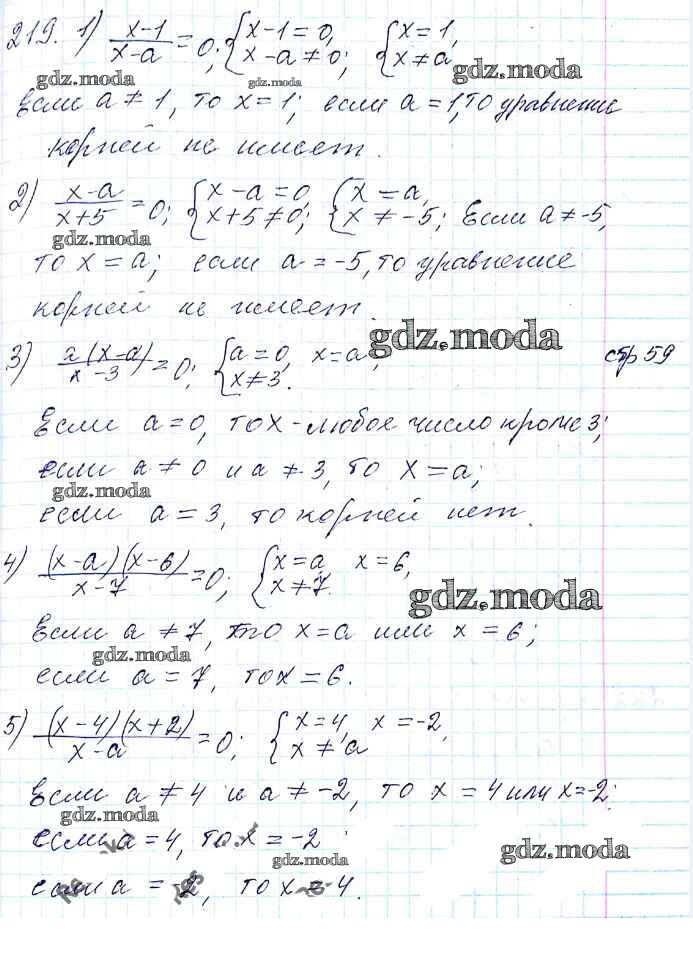 219. 1) (x-1)/(x-a) = 0; { x-1=0, x-a≠0; { x=1, x≠a
gdz.moda gdz.moda gdz.moda
Если a ≠ 1, то x = 1; если a = 1, то уравнение
корней не имеет.
2) (x-a)/(x+5) = 0; { x-a=0, x+5≠0; { x=a, x≠-5; Если a≠-5,
gdz.moda
то x = a; если a = -5, то уравнение
корней не имеет.
gdz.moda
3) a(x-a)/(x-3) = 0; { a=0, x=a, x≠3. стр 59
Если a=0, то x - любое число кроме 3;
если a ≠ 0 и a ≠ 3, то x = a;
gdz.moda
если a = 3, то корней нет.
4) (x-a)(x-6)/(x-7) = 0; { x=a, x=6, x≠7.
gdz.moda
Если a ≠ 7, то x=a или x = 6;
gdz.moda
если a = 7, то x = 6.
5) (x-4)(x+2)/(x-a) = 0; { x=4, x=-2, x≠a
Если a ≠ 4 и a ≠ -2, то x = 4 или x=-2;
gdz.moda
если a = 4, то x = -2
gdz.moda gdz.moda
если a = 2, то x = 4.